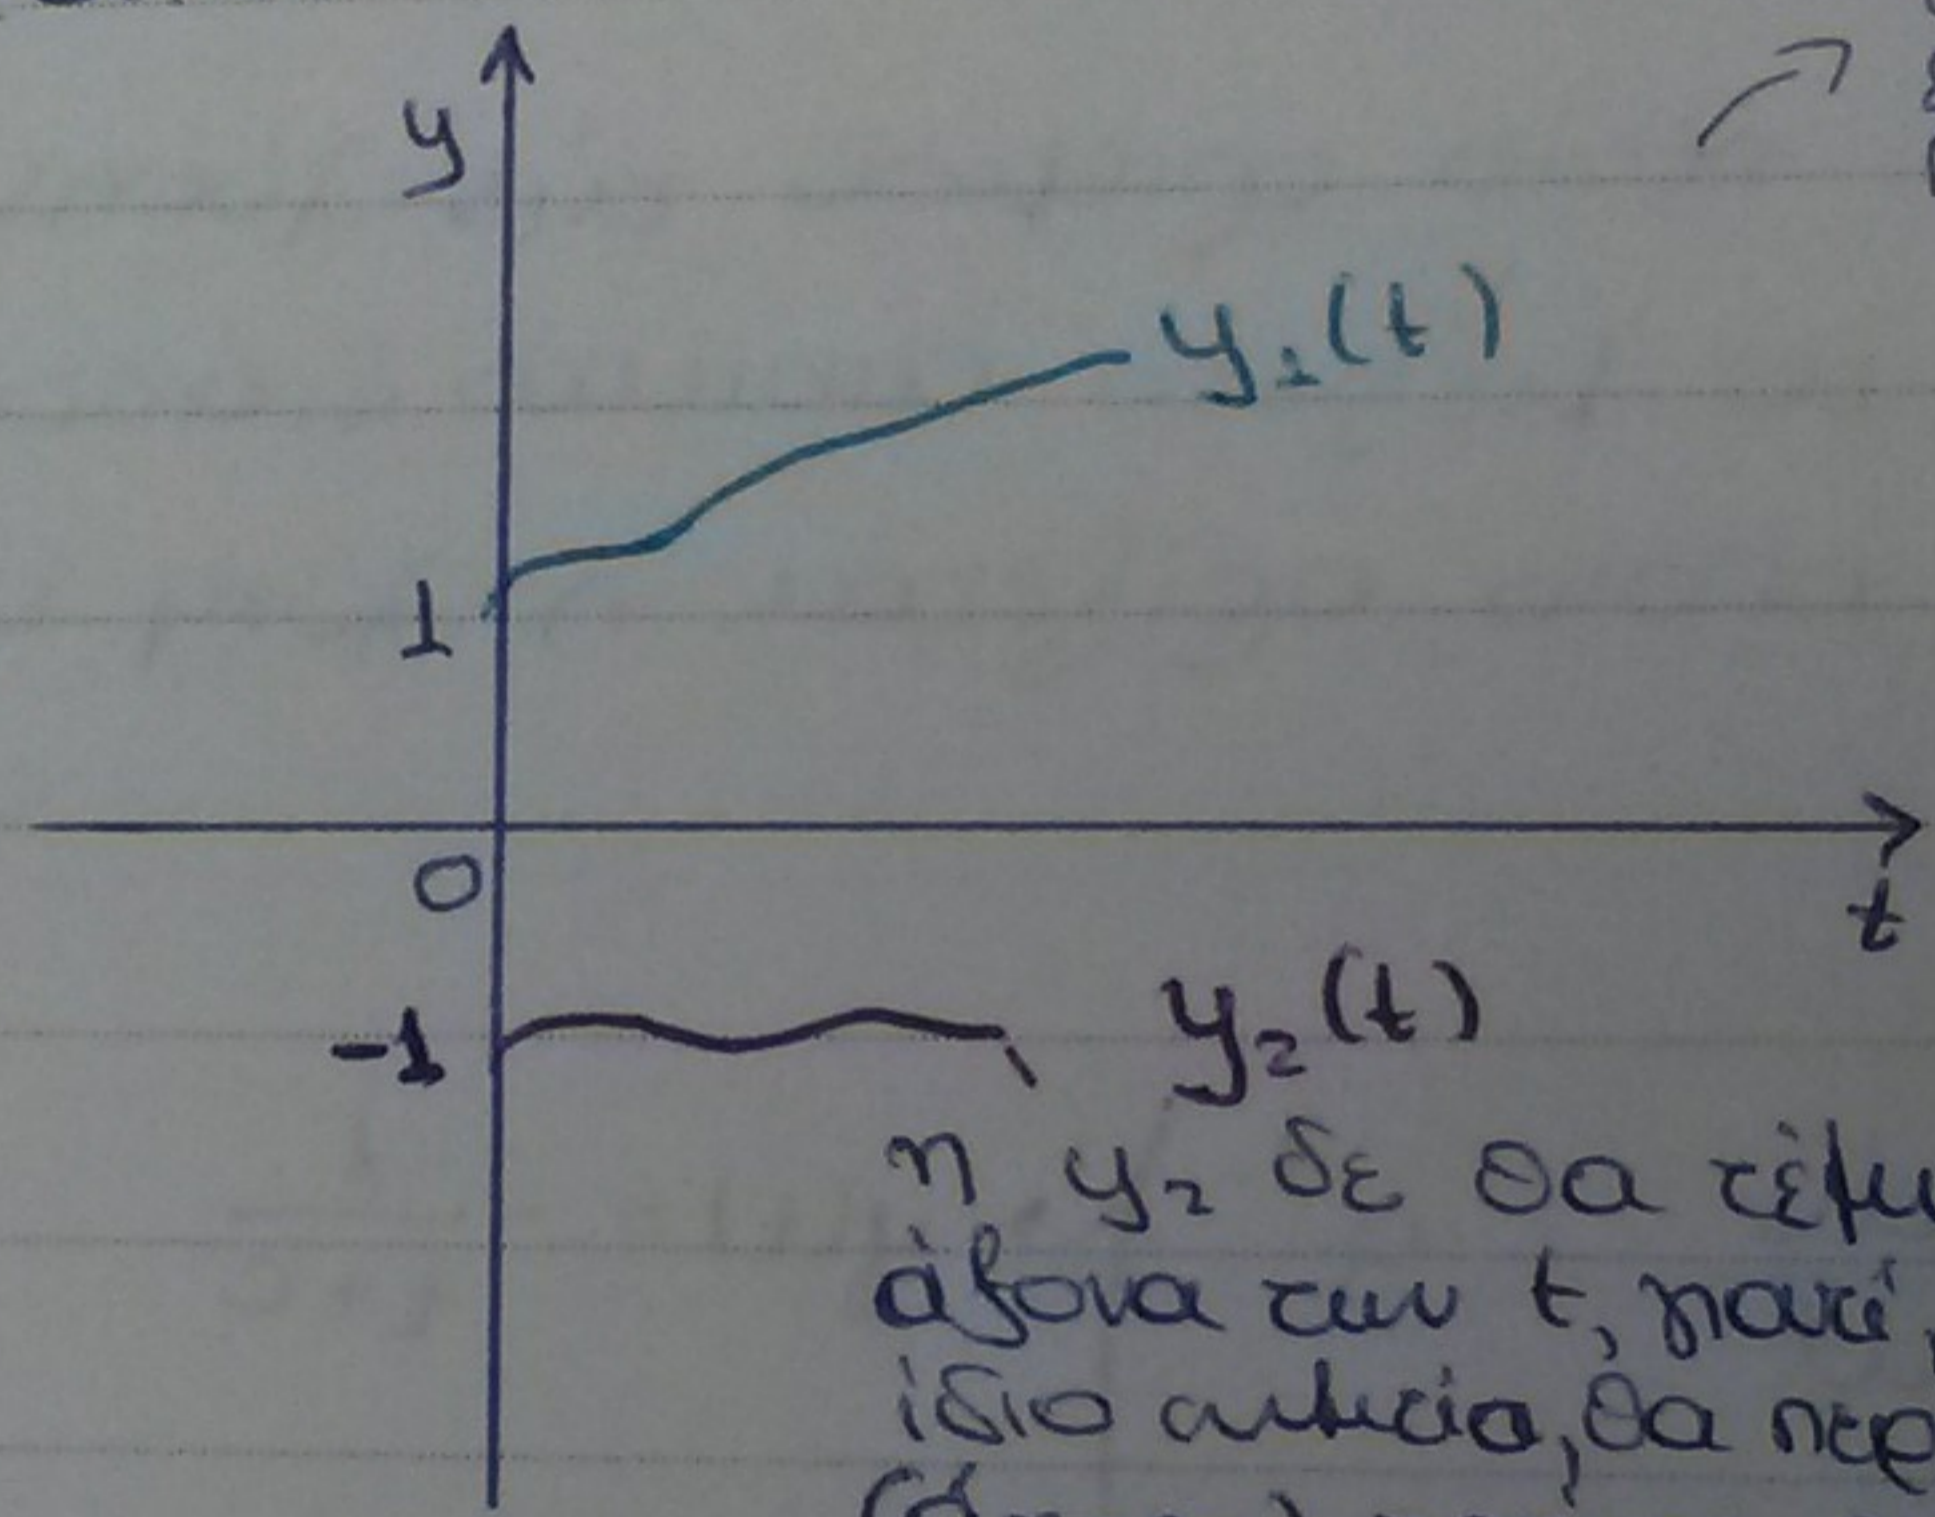 y
y₁(t)
1
0
t
-1
y₂(t)
η y₂ δε θα τέμν
άξονα των t, γιατί,
ίδιο σημείο, θα περ